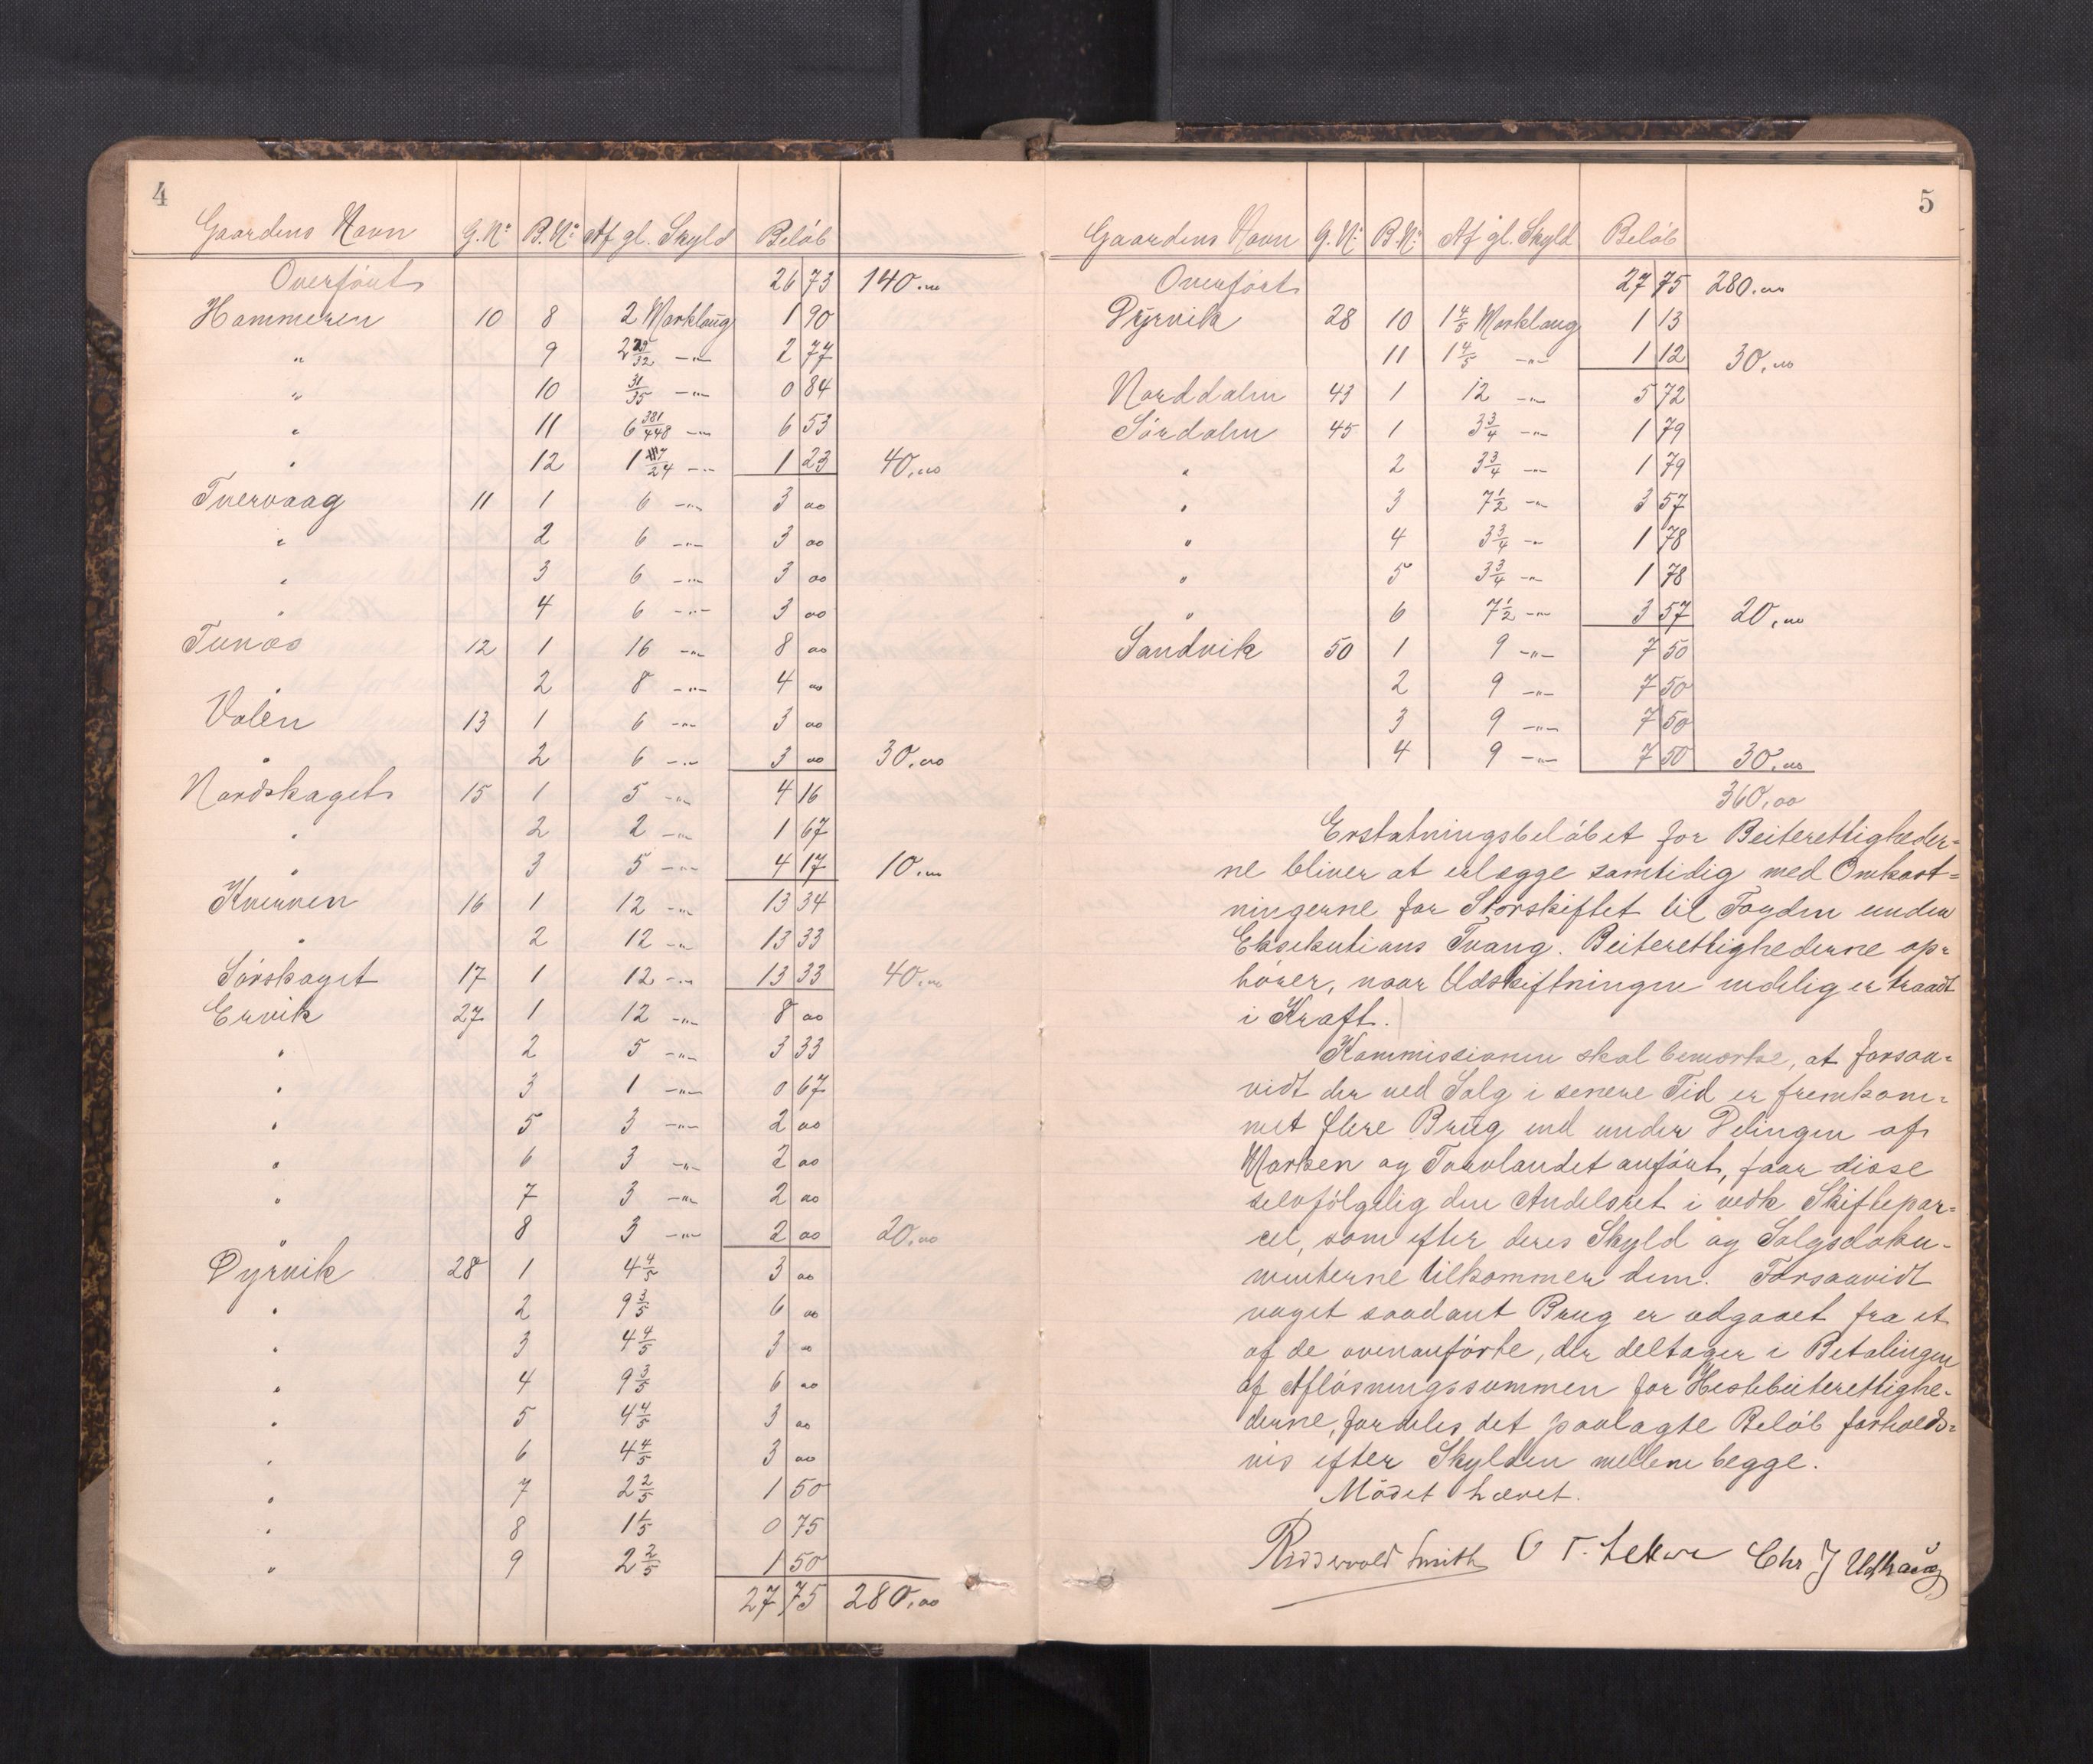 4
Gaardens Navn G.Nº B.Nº Af gl. Skyld Beløb
Overført 26 73 140.00
Hammeren 10 8 2 Marklaug 1 90
" 9 2 29/32 -"- 2 77
" 10 31/35 -"- 0 84
" 11 6 381/448 -"- 6 53
" 12 1 7/24 -"- 1 23 40.00
Tvervaag 11 1 6 -"- 3 00
" 2 6 -"- 3 00
" 3 6 -"- 3 00
" 4 6 -"- 3 00
Tunæs 12 1 16 -"- 8 00
" 2 8 -"- 4 00
Valen 13 1 6 -"- 3 00
" 2 6 -"- 3 00 30.00
Nordskaget 15 1 5 -"- 4 16
" 2 2 -"- 1 67
" 3 5 -"- 4 17 10.00
Kvernen 16 1 12 -"- 13 34
" 2 12 -"- 13 33
Sørskaget 17 1 12 -"- 13 33 40.00
Ervik 27 1 12 -"- 8 00
" 2 5 -"- 3 33
" 3 1 -"- 0 67
" 5 3 -"- 2 00
" 6 3 -"- 2 00
" 7 3 -"- 2 00
" 8 3 -"- 2 00 20.00
Dyrvik 28 1 4 4/5 3 00
" 2 9 3/5 6 00
" 3 4 4/5 3 00
" 4 9 3/5 6 00
" 5 4 4/5 3 00
" 6 4 4/5 3 00
" 7 2 2/5 1 50
" 8 1 1/5 0 75
" 9 2 2/5 1 50
27 75 280.00
5
Gaardens Navn G.Nº B.Nº Af gl. Skyld Beløb
Overført 27 75 280.00
Dyrvik 28 10 1 4/5 Marklaug 1 13
11 1 4/5 -"- 1 12 30.00
Norddalen 43 1 12 -"- 5 72
Sørdalen 45 1 3 3/4 -"- 1 79
" 2 3 3/4 -"- 1 79
" 3 7 1/2 -"- 3 57
" 4 3 3/4 -"- 1 78
" 5 3 3/4 -"- 1 78
" 6 7 1/2 -"- 3 57 20.00
Sandvik 50 1 9 -"- 7 50
2 9 -"- 7 50
3 9 -"- 7 50
4 9 -"- 7 50 30.00
360.00
Erstatningsbeløbet for Beiterettigheder=
ne bliver at erlægge samtidig med Omkost=
ningerne for Storskiftet til Fogden under
Eksekutions Tvang. Beiterettighederne op=
hører, naar Udskiftningen endelig er traadt
i Kraft.
Kommissionen skal bemærke, at forsaa=
vidt der ved Salg i senere Tid er fremkom=
met flere Brug end under Delingen af
Marken og Torvlandet anført, faar disse
selvfølgelig den Andelsret i vedk Skiftepar=
cel, som efter deres Skyld og Salgsdoku=
menterne tilkommer dem. Forsaavidt
noget saadant Brug er udgaaet fra et
af de ovenanførte, der deltager i Betalingen
af Afløsningssummen for Hestebeiterettighe=
derne, fordeles det paalagte Beløb forholds=
vis efter Skylden mellem begge.
Mødet hævet.
Risswoold Smith O T. Lekve Chr J Udhaug